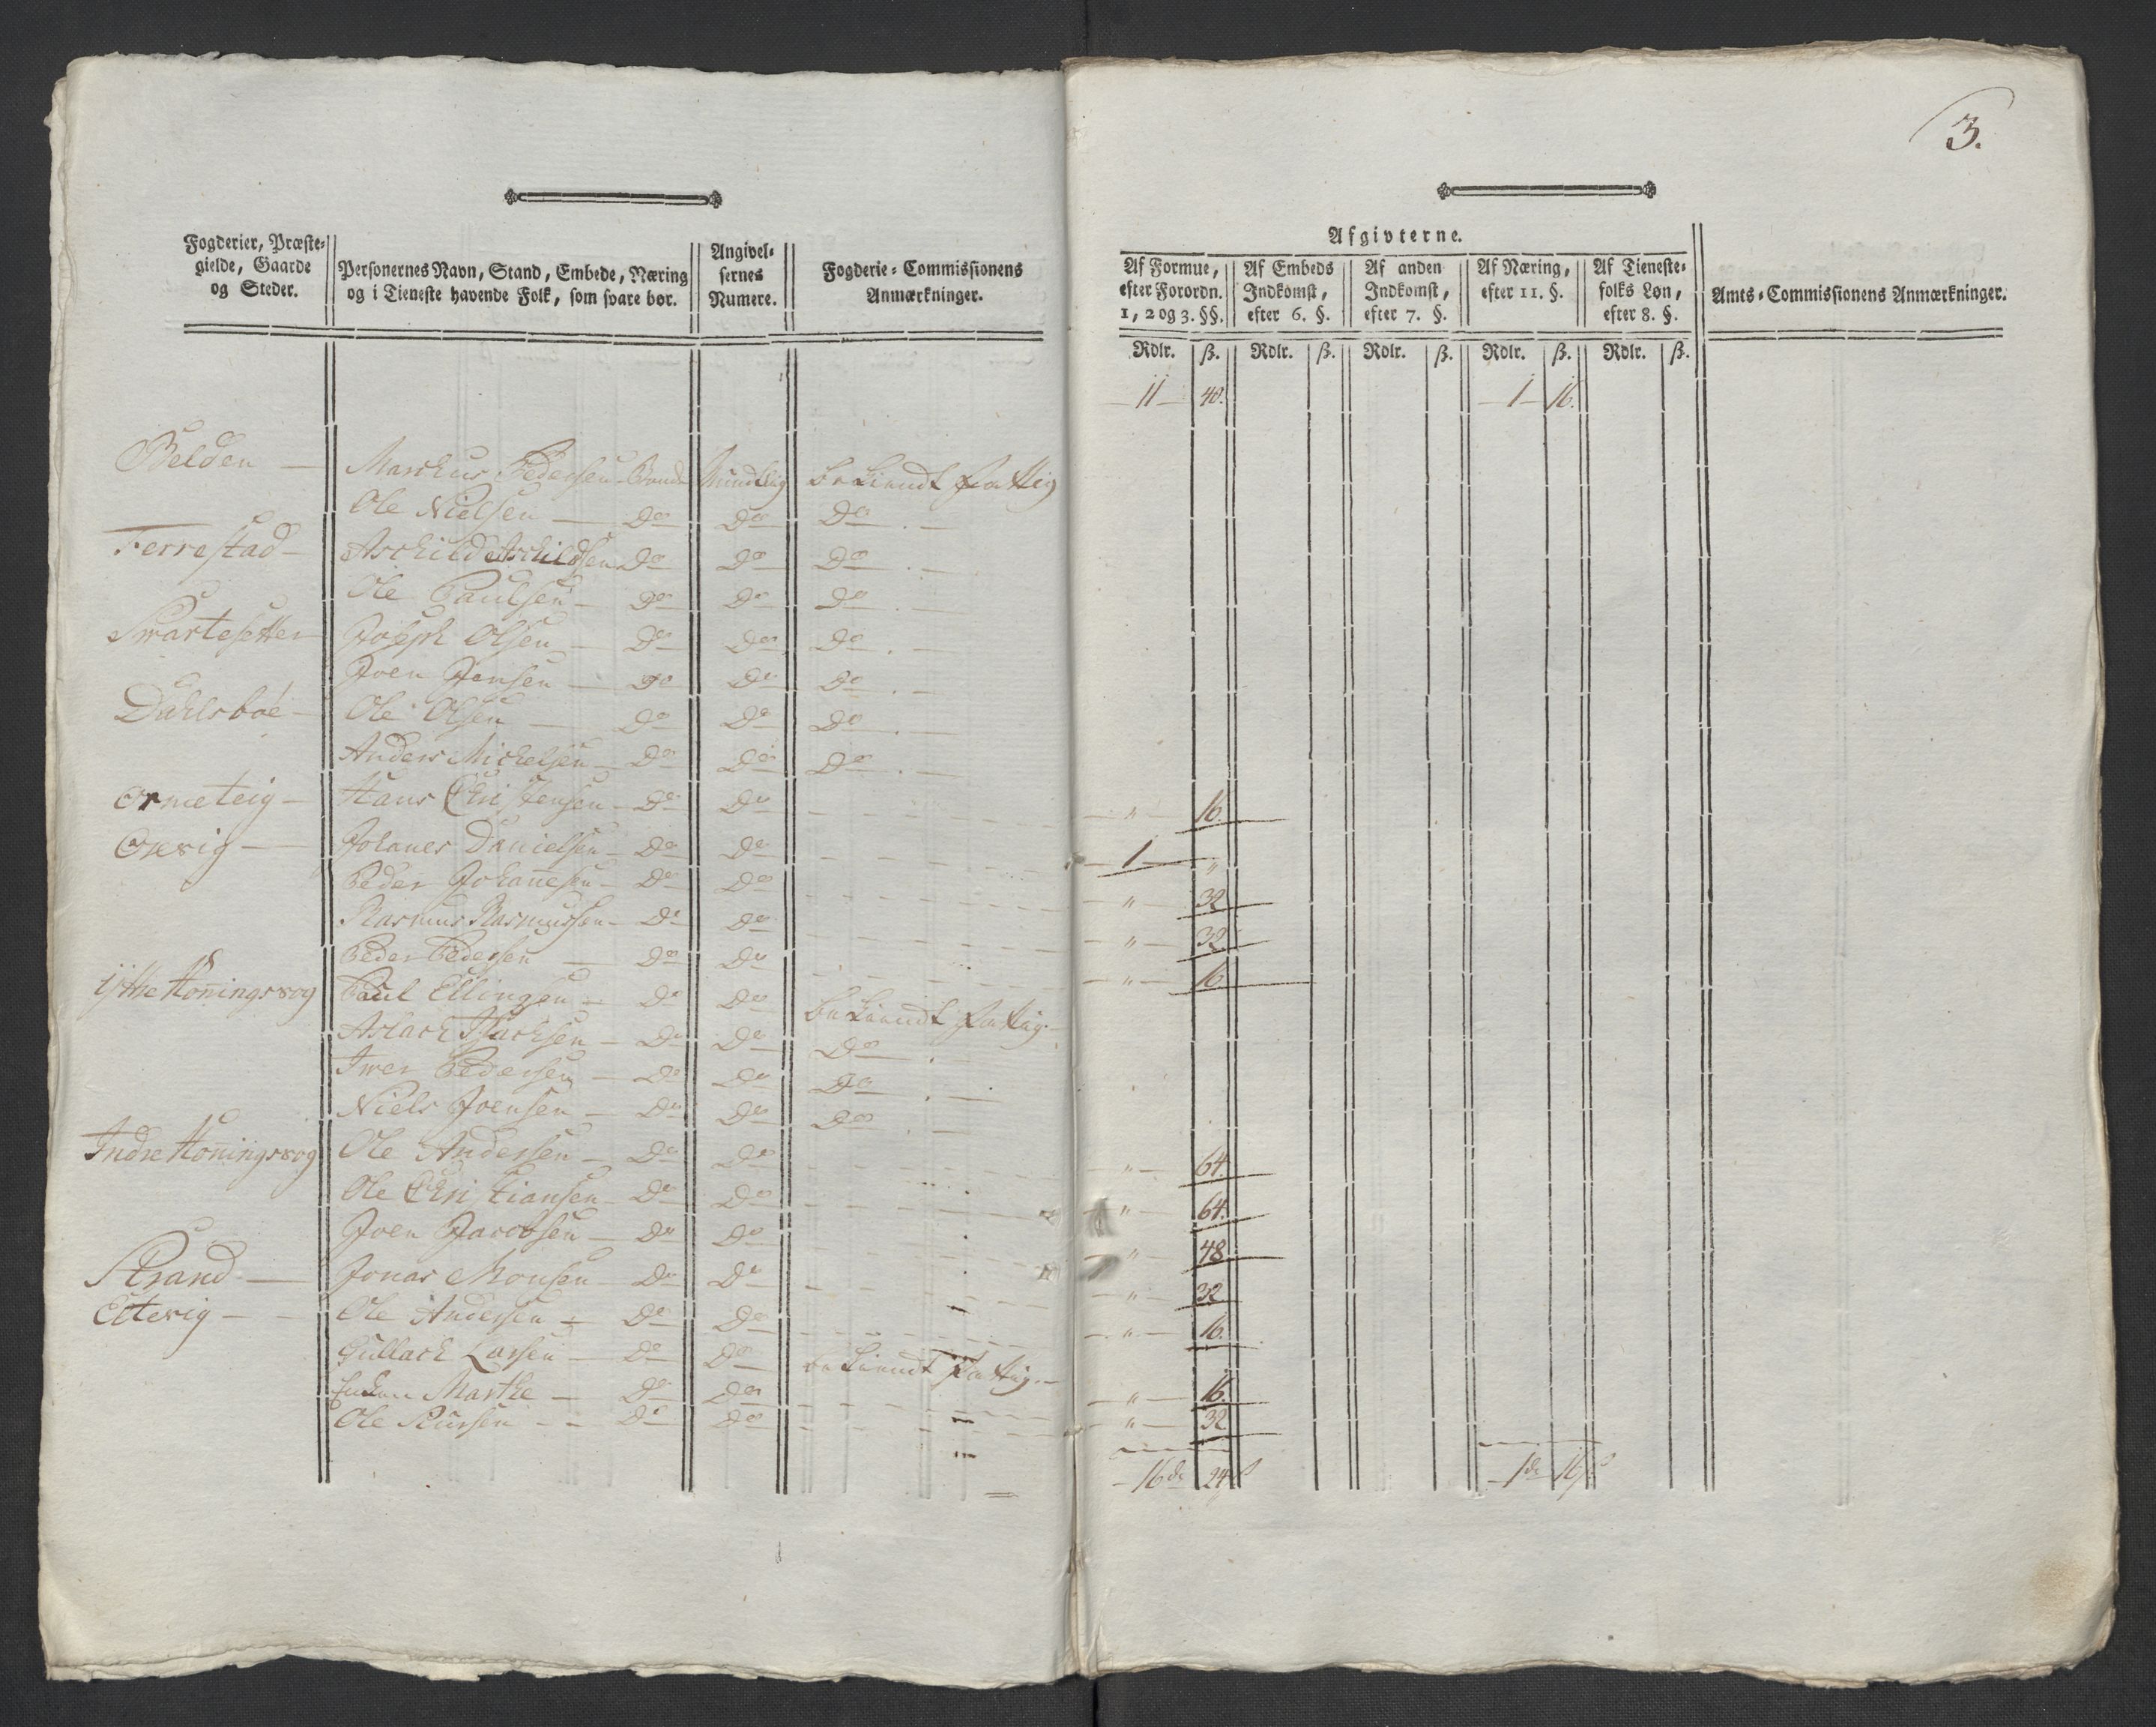 3.
Fogderier, Præste-
gielde, Gaarde
og Steder.
Personernes Navn, Stand, Embede, Næring
og i Tieneste havende Folk, som svare bør.
Angivel-
sernes
Numere.
Fogderie-Commissionens
Anmærkninger.
Afgivterne.
Af Formue,
efter Forordn.
1, 2 og 3. §§.
Af Embeds
Indkomst,
efter 6. §.
Af anden
Indkomst,
efter 7. §.
Af Næring,
efter 11. §.
Af Tieneste-
folks Løn,
efter 8. §.
Amts-Commissionens Anmærkninger.
Rdlr. ß. Rdlr. ß. Rdlr. ß. Rdlr. ß. Rdlr. ß.
11 — 40. — 1 — 16.
Belden — Marckus Pedersen Bonde Mundtlig bekiendt fattig
Ole Nielsen — Do Do Do. —
Ferrestad — Aschild Aschildsen Do Do Do. —
Ole Paulsen — Do Do Do. —
Swartesetter Joseph Olsen — Do Do Do. —
Joen Jensen — Do Do Do. —
Dahlsboe — Ole Olsen — Do Do Do. —
Anders Michelsen — Do Do Do. —
Ormeteig — Hans Christensen — Do Do — " — 16.
Oxvig — Johanes Danielsen — Do Do — 1 — "
Peder Johannesen — Do Do — " — 32
Rasmus Rasmussen — Do Do — " — 32
Peder Pedersen — Do Do — " — 16
ijthe Honingsvog Paul Ellingsen — Do Do bekiendt fattig. —
Aslack Islacksen — Do Do Do. —
Iwer Pedersen — Do Do Do. —
Niels Joensen — Do Do Do. —
Indre Honingsvog Ole Andersen — Do Do — " — 64.
Ole Christiansen — Do Do — " — 64.
Joen Jacobsen — Do Do — " — 48
Strand — Jonas Monsen Do Do — " — 32
Eltevig — Ole Andersen — Do Do — " — 16.
Gullack Larsen — Do Do bekiendt fattig. —
Enken Marthe — Do Do — " — 16.
Ole Siursen — Do Do — " — 32
— 16 dr 24 ß — 1 dr 16 ß